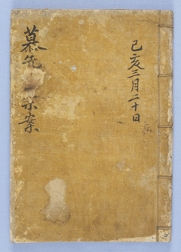 己亥三月二十日
慕先
案